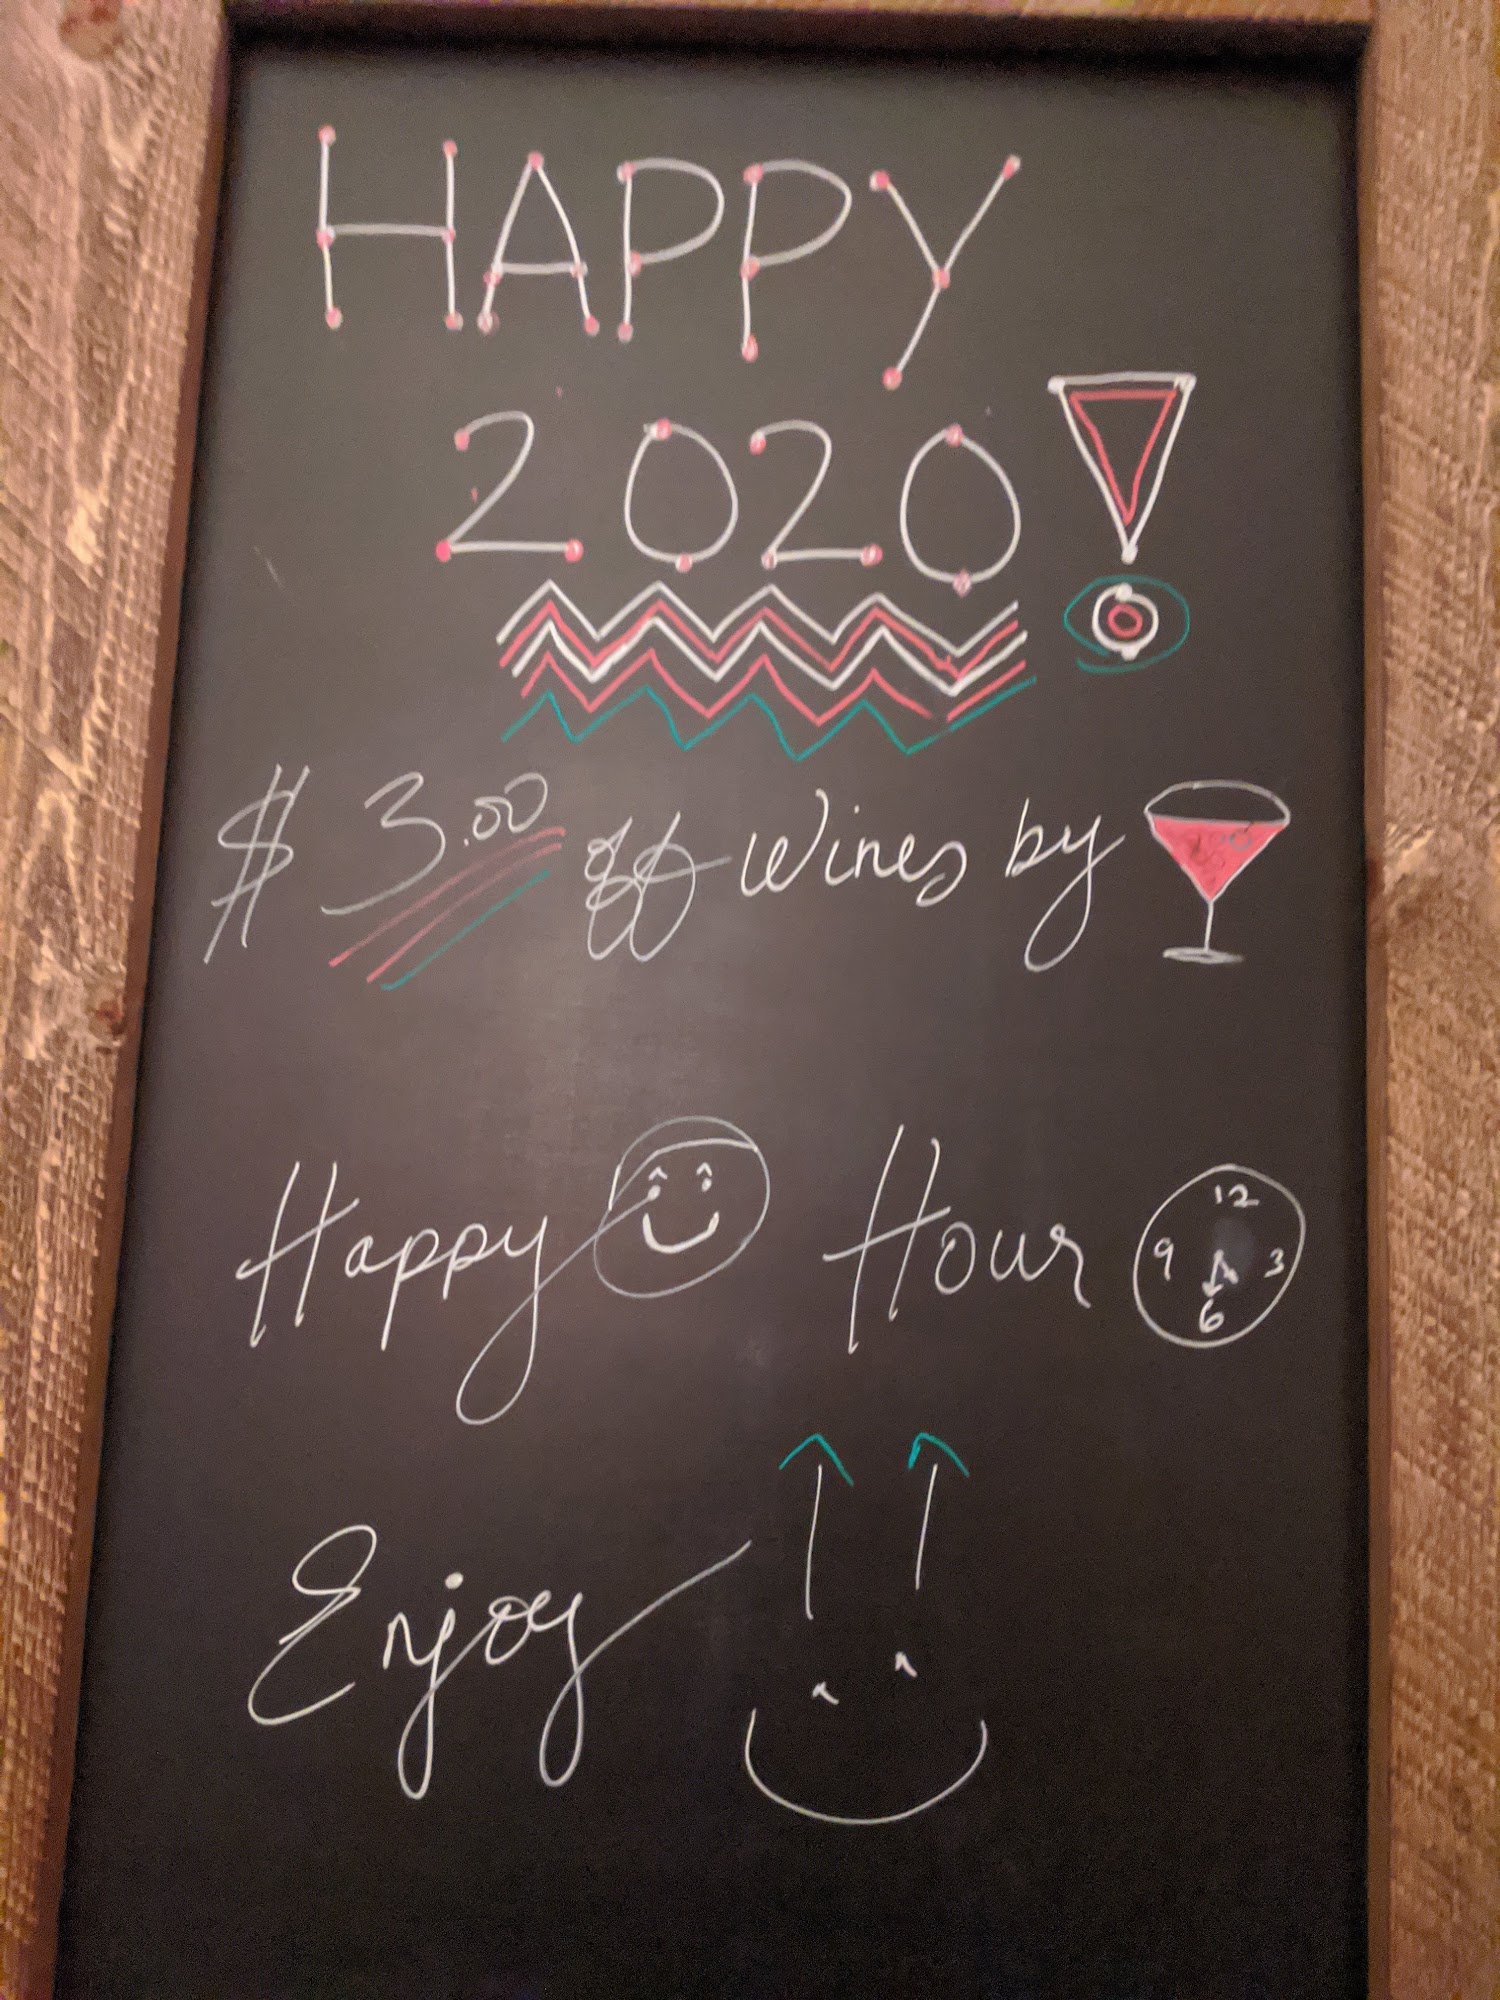 HAPPY
2020!
$3.00 off Wines by
Happy Hour
12
9 3
6
Enjoy